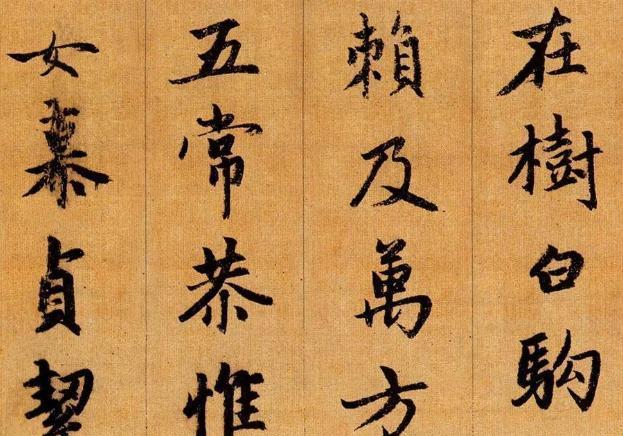 在樹白駒
賴及萬方
五常恭惟
女慕貞絜